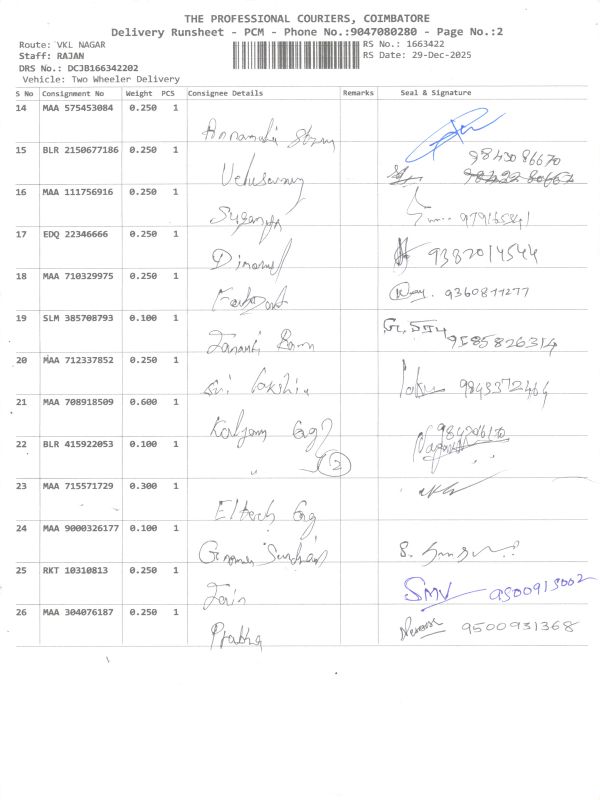 THE PROFESSIONAL COURIERS, COIMBATORE
Delivery Runsheet - PCM - Phone No.:9047080280 - Page No.:2
Route: VKL NAGAR
RS No.: 1663422
Staff: RAJAN
RS Date: 29-Dec-2025
DRS No.: DCJB166342202
Vehicle: Two Wheeler Delivery
S No Consignment No Weight PCS Consignee Details Remarks Seal & Signature
14 MAA 575453084 0.250 1
15 BLR 2150677186 0.250 1 9843086670
16 MAA 111756916 0.250 1
17 EDQ 22346666 0.250 1 9382014544
18 MAA 710329975 0.250 1 9360877277
19 SLM 385708793 0.100 1 9585826314
20 MAA 712337852 0.250 1 Sri Lakshin 9843372464
21 MAA 708918509 0.600 1
22 BLR 415922053 0.100 1 " 2
23 MAA 715571729 0.300 1 Eltech Eng
24 MAA 9000326177 0.100 1
25 RKT 10310813 0.250 1 Jain SMV 9500913002
26 MAA 304076187 0.250 1 Prabha 9500931368